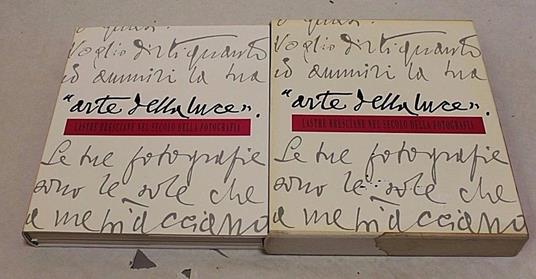 Voglio dirti quanto
ed ammiri la tua
"arte della luce".
LASTRE BRESCIANE NEL SECOLO DELLA FOTOGRAFIA
Le tue fotografie
sono le sole che
a me piacciano
Voglio dirti quanto
ed ammiri la tua
"arte della luce".
LASTRE BRESCIANE NEL SECOLO DELLA FOTOGRAFIA
Le tue fotografie
sono le sole che
a me piacciano